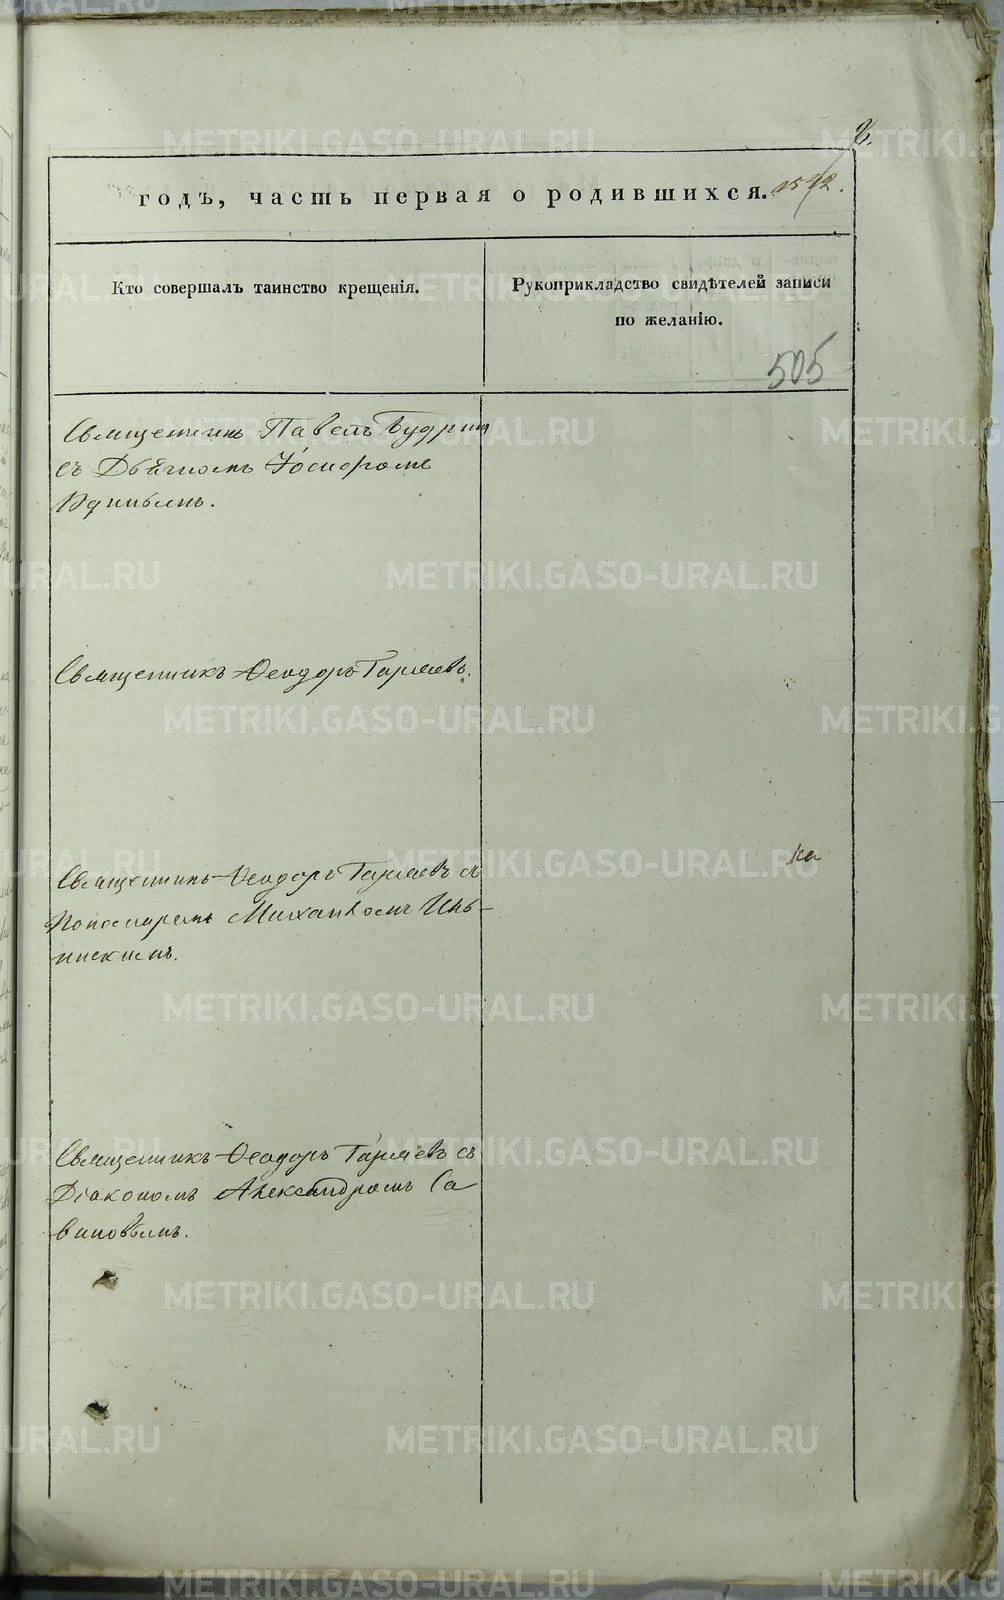 METRIKI.GASO-URAL.RU
2.
годъ, часть первая о родившихся.
Кто совершалъ таинство крещенія.
Рукоприкладство свидѣтелей записи
по желанію.
505
Священникъ Павелъ Будрин
съ Дьячкомъ Іосифомъ
Священникъ Ѳеодоръ Гаряевъ.
Священникъ Ѳеодоръ Гаряевъ съ
Пономаремъ Михаиломъ Иль-
инскимъ.
Священникъ Ѳеодоръ Гаряевъ съ
Діакономъ Александромъ Са
виновымъ.